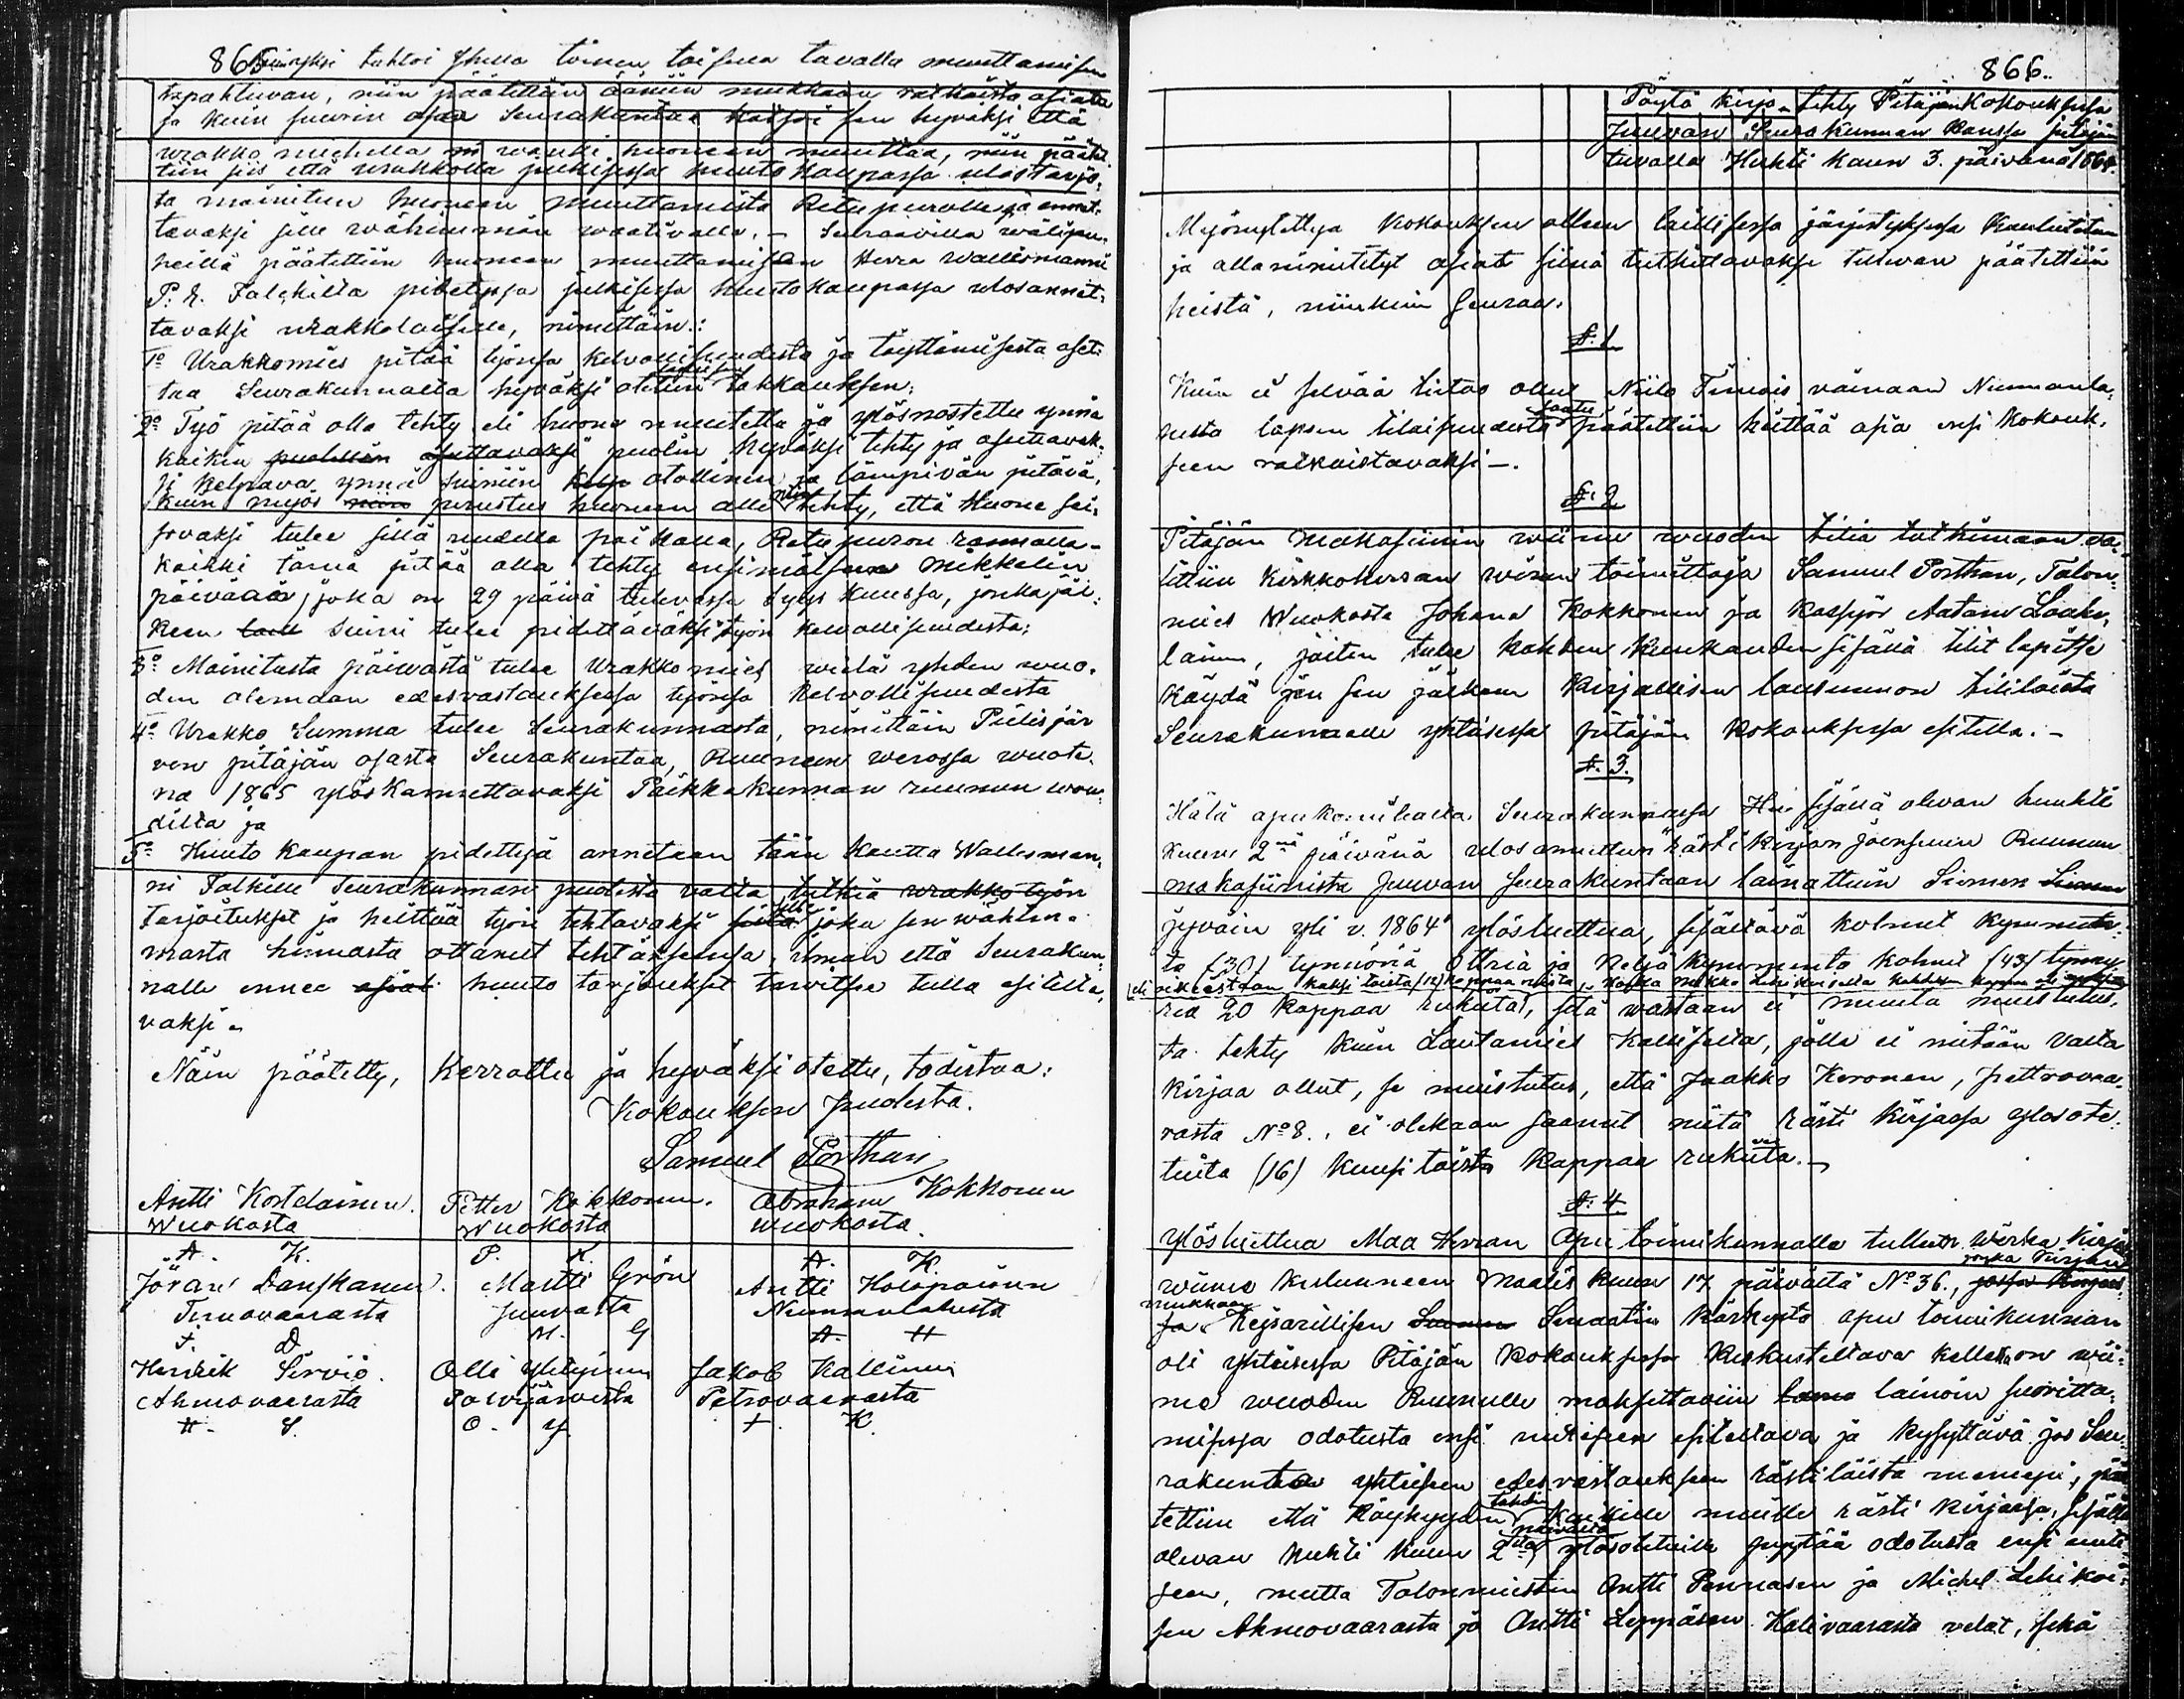 865
tahtoi yhella toinen toisella tavalla muuttamisen
tapahtuvan, niin päätettiin äänien mukkaan ratkaista asiata
ja kuin suurin osa Seurakuntaa katsoi sen hyväksi että
urakko miehella huoneen muuttaa, niin päätet-
tiin siis että urakkolla julkisessa huuto kaupassa ulostarjo-
ta mainitun huoneen muuttamista Retupurolle ja annet-
tavaksi sille wähimmän waativalle. - Seuraavilla wälipu-
heilla päätettiin huoneen muuttamisen Herra Wallesmanni
P. E. Falckilta pidetyssä julkisessa huutokaupassa ulosannet-
tavaksi urakkolaiselle, nimittäin:
1o Urakkomies pitää työnsä kelvollisuudesta ja täyttämisestä aset-
taa Seurakunnalta hyväksi otettun takkauksen;
2o Työ pitää olla tehty eli huone muutettu ja ylösnostettu ynnä
kaikin puolin hyväksi tehty ja asuttavak-
si kelpaava ynnä Suiniin otollinen ja lämpivän pitävä,
kuin myös perustus huoneen alle niin tehty, että Huone sei-
sovaksi tulee sillä uudella paikalla, Retupuron rannalla -
kaikki tämä pitää olla tehty ensimäiseen Mikkelin
päivään, joka on 29 päivä tulevassa Syys kuussa, jonka jäl-
keen Suini tulee pidettäväksi työn kelvollisuudesta;
3o Mainitusta päiwästä tulee Urakko mies wielä yhden wuo-
den olemaan edesvastauksessa työnsä kelvollisuudesta
4o Urakko Summa tulee Seurakunnasta, nimittäin Pielisjär
ven pitäjän osasta Seurakuntaa, Ruunun werossa wuote-
na 1865 ylöskannettavaksi Paikkakunnan ruunun wou-
dilta ja
5o Huuto kaupan pidettyä annetaan tään kautta Wallesman-
ni Falkille Seurakunnan puolesta valta tutkia urakko työn
tarjoitukset ja heittää työn tehtäväksi sille joka sen wähim-
mästä hinnasta ottanut tehtäksensä, ilman että Seurakun-
nalle ennen huuto tarjoukset tarvitsee tulla esitettä-
vaksi.
Näin päätetty, kerrottu ja hyväksi otettu, todistaa:
Kokouksen puolesta.
Samuel Porthan
Antti Kostelainen. Petter Kokkonen. Abraham Kokkonen
Wuokosta Wuokosta Wuokosta
A. K. P. K. A. K.
Jöran Danskanen. Martti Grön Antti Holopainen
Timovaarasta Juuvasta Nunnanlahesta
J. D. M. G A. H
Henrik Sirviö. Olli Yletyinen Jakob Kallinen
Ahmovaarasta Polvijärvesta Petrovaarasta
H. S. O. Y. J. K.
866.
Pöytä kirja, tehty Pitäjänkokouksessa
Juuvan Seurakunnan kanssa pitäjän
tuvalla Huhti kuun 3. päivänä 1864.
Myönnyttettyä Kokouksen olleen laillisessa järjestyksessä kuulutetun
ja allanimitetyt asiat siinä tutkittavaksi tulevan päätettiin
heistä, niinkuin seuraa:
§. 1
Kuin ei selvää tietoa ollut Niilo Timois vainaan Nunnanla-
hesta lapsen tilaisuudesta saatu päätettiin heittää asia ensi kokouk-
seen ratkaistavaksi -.
§. 2
Pitäjän makasiinin wiime wuoden tiliä tutkimaan va-
littiin Kirkkoherran wiran toimittaja Samuel Porthan, Talon-
mies Wuokosta Johan Kokkonen ja kassyör Aatam Laako-
lainen, joiten tulee kahden kuukauden sisällä tilit läpitse
käydä ja sen jälkeen kirjallisen lausunnon tililöistä
Seurakunnalle yhtäisessä pitäjän kokouksessa esitellä. -
§. 3.
Hätä apu komitealta Seurakunnassa Hui sisällä olevan huuhti
kuun 2na päivänä ulosannettun rästi kirjan Joensuun Ruunun
makasiinista Juuvan Seurakuntaan lainattuin Siemen
jyväin yli v. 1864 ylösluettua, sisältävä kolmet kymmen-
tä (30) tynnöriä Ottria ja neljä kymmentä kolmet (43) tynny-
riä 20 kappaa rukiita, sitä wastaan ei muuta muistutus-
ta tehty kuin Lautamies Kallisella, jolla ei mitään vasta
kirjaa ollut, se muistutus, että Jaakko Keronen, Pettrovaa-
rasta No 8., ei olekaan saanut niitä rästi kirjassa ylösote-
tuita (16) kuusi toista kappaa rukiita. -
§. 4
Ylösluettua Maa Herran Apu toimikunnalle tullut wirka kirja
wiime kuluneen Maalis kuun 17 päivältä No 36., jonka kirjan
mukkaan Keisarillisen Senaatin käskystä apu toimikunnan
oli yhteisessä Pitäjän kokouksessa keskusteltava kellekä on wii-
me wuoden Ruunulle maksettaviin lainoin suoritta-
misessa odotusta ensi uutiseen esitettävä ja kysyttävä jos Seu-
rakunta yhteiseen edesvastaukseen rästilöistä menisi; pää
tettiin että köyhyyden tähden kaikille muille rästi kirjassa, sisällä
olevan huhti kuun 2na päivältä ylösotetuille pyytää odotusta ensi uuti-
seen, mutta Talonmiesten Antti Pennasen ja Michel Lehikoi-
sen Ahmovaarasta ja Antti Leppäsen Halivaarasta velat, sekä